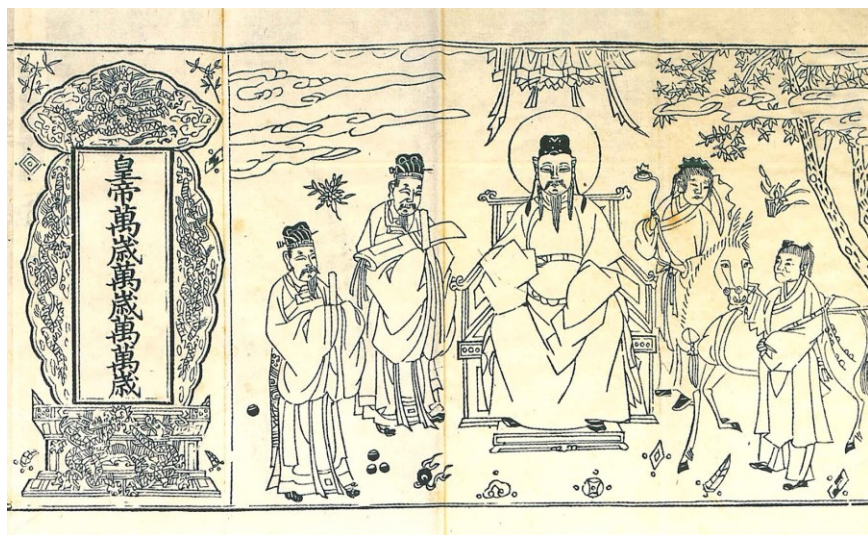 皇帝萬歲萬歲萬萬歲